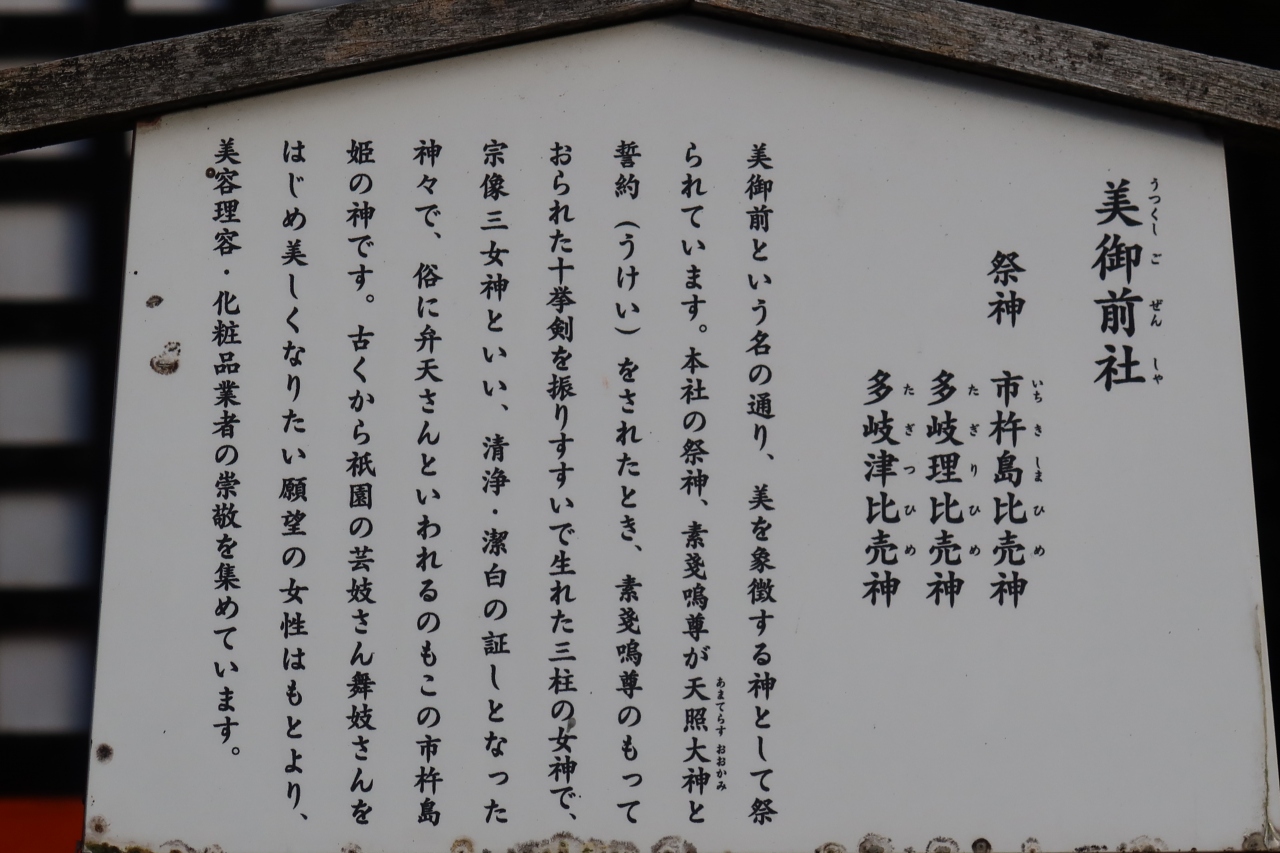 美御前社
うつくしごぜんしゃ
祭神 市杵島比売神
いちきしまひめ
多岐理比売神
たぎりひめ
多岐津比売神
たぎつひめ
美御前という名の通り、美を象徴する神として祭
られています。本社の祭神、素戔嗚尊が天照大神と
あまてらすおおかみ
誓約(うけい)をされたとき、素戔嗚尊のもって
おられた十挙剣を振りすすいで生れた三柱の女神で、
宗像三女神といい、清浄・潔白の証しとなった
神々で、俗に弁天さんといわれるのもこの市杵島
姫の神です。古くから祇園の芸妓さん舞妓さんを
はじめ美しくなりたい願望の女性はもとより、
美容理容・化粧品業者の崇敬を集めています。